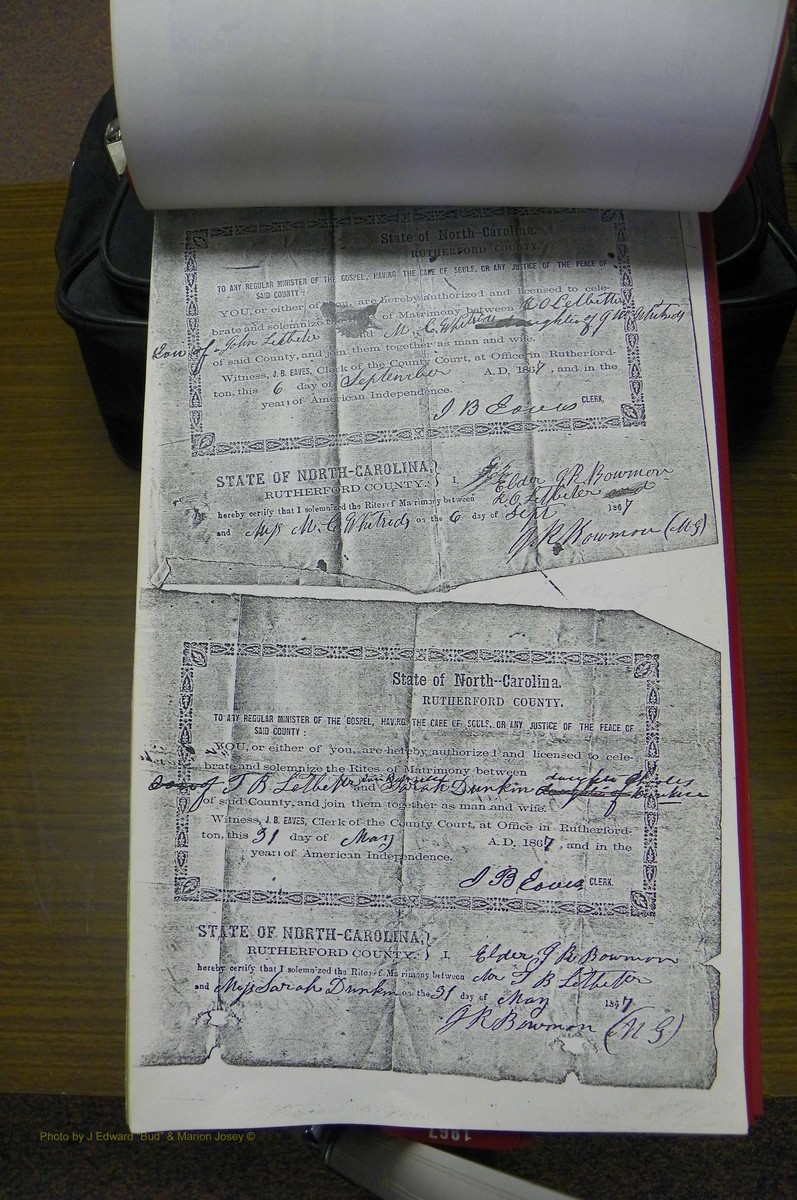 State of North-Carolina.
RUTHERFORD COUNTY.
TO ANY REGULAR MINISTER OF THE GOSPEL, HAVING THE CARE OF SOULS, OR ANY JUSTICE OF THE PEACE OF
SAID COUNTY:
YOU, or either of you, are hereby authorized and licensed to cele-
brate and solemnize of Matrimony between R O Letbetter
Son of John Letbeter and M. C. Whitesids daughter of J W Whitesids
of said County, and join them together as man and wife.
Witness, J. B. EAVES, Clerk of the County Court, at Office in Rutherford-
ton, this 6 day of September A. D. 1867, and in the
year of American Independence.
J B Eaves CLERK,
STATE OF NORTH-CAROLINA,
RUTHERFORD COUNTY: } I, Elder J. R. Bowmon
hereby certify that I solemnized the Rites of Matrimony between R O Letbeter and
and Miss M. C. Whitesids on the 6 day of Sept 1867
J. R. Bowmon (M G)
State of North-Carolina.
RUTHERFORD COUNTY.
TO ANY REGULAR MINISTER OF THE GOSPEL, HAVING THE CARE OF SOULS, OR ANY JUSTICE OF THE PEACE OF
SAID COUNTY:
YOU, or either of you, are hereby authorized and licensed to cele-
brate and solemnize the Rites of Matrimony between
Son of T B Letbetter and Sarah Dunkin daughter of
of said County, and join them together as man and wife.
Witness, J. B. EAVES, Clerk of the County Court, at Office in Rutherford-
ton, this 31 day of May A. D. 1867, and in the
year of American Independence.
J B Eaves CLERK.
STATE OF NORTH-CAROLINA,
RUTHERFORD COUNTY: } I, Elder J R Bowmon
hereby certify that I solemnized the Rites of Matrimony between Mr T B Letbeter
and Miss Sarah Dunkin on the 31 day of May 1867
J R Bowmon (M G)
1867
Photo by J Edward "Bud" & Marion Josey ©